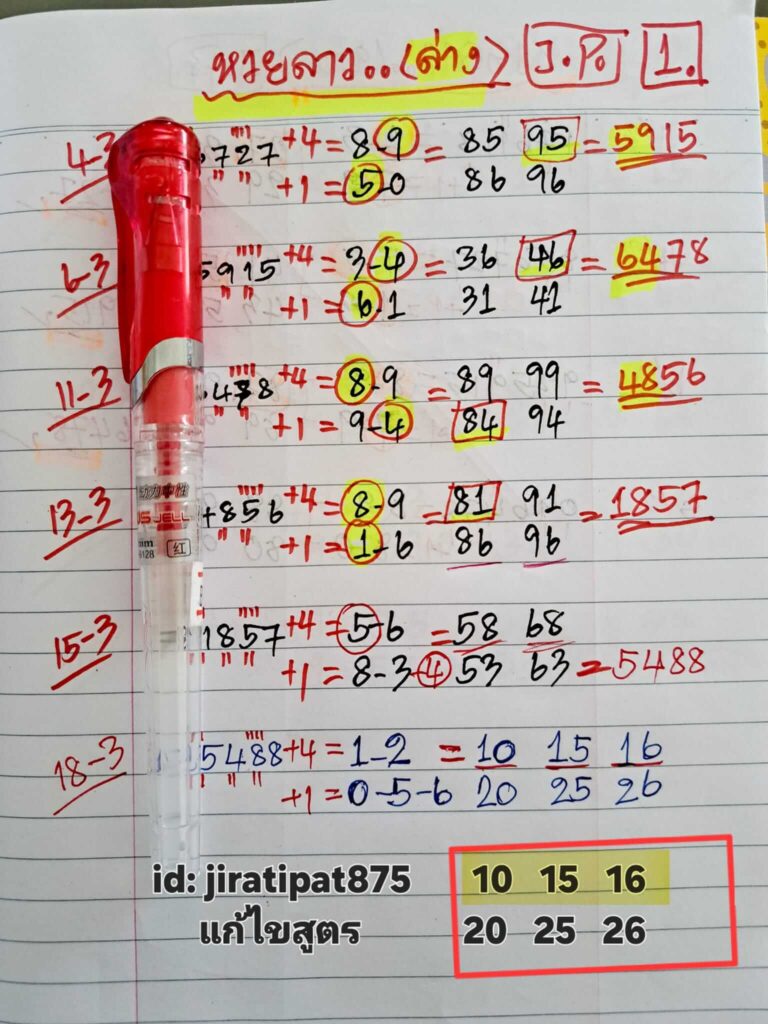 หวยลาว..(ล่าง) J.P. 1.
4-3 727 +4 = 8-9 = 85 95 = 5915
+1 = 5-0 86 96
6-3 5915 +4 = 3-4 = 36 46 = 6478
+1 = 6-1 31 41
11-3 478 +4 = 8-9 = 89 99 = 4856
+1 = 9-4 84 94
13-3 4856 +4 = 8-9 = 81 91 = 1857
+1 = 1-6 86 96
US JELL
9128 红
15-3 1857 +4 = 5-6 = 58 68
+1 = 8-3-4 53 63 = 5488
18-3 5488 +4 = 1-2 = 10 15 16
+1 = 0-5-6 20 25 26
id: jiratipat875 10 15 16
แก้ไขสูตร 20 25 26